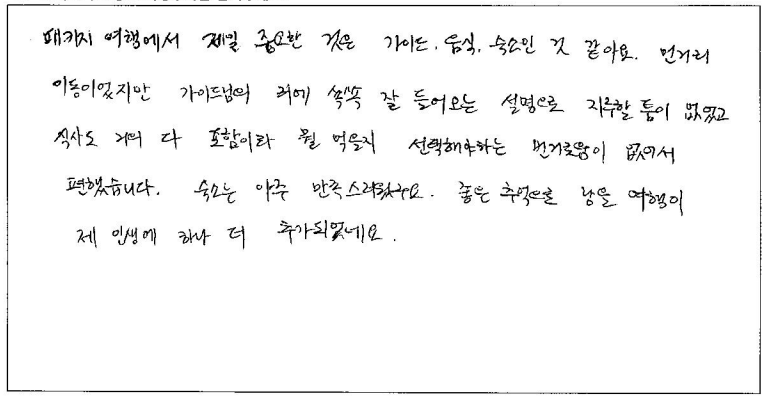 패키지 여행에서 제일 중요한 것은 가이드, 음식, 숙소인 것 같아요. 먼거리
이동이었지만 가이드님의 귀에 쏙쏙 잘 들어오는 설명으로 지루할 틈이 없었고
식사도 거의 다 포함이라 뭘 먹을지 선택해야하는 번거로움이 없어서
편했습니다. 숙소는 아주 만족스러웠구요. 좋은 추억으로 남을 여행이
제 인생에 하나 더 추가되었네요.